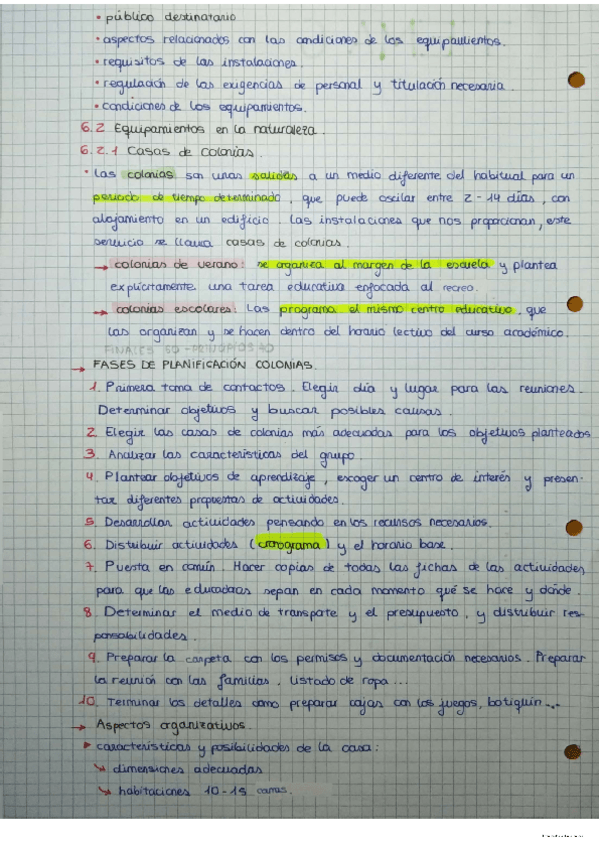 • público destinatario
• aspectos relacionados con las condiciones de los equipamientos.
• requisitos de las instalaciones.
• regulación de las exigencias de personal y titulación necesaria.
• condiciones de los equipamientos.
6.2 Equipamientos en la naturaleza.
6.2.1 Casas de colonias.
• Las colonias son unas salidas a un medio diferente del habitual para un
periodo de tiempo determinado, que puede oscilar entre 2-14 días, con
alojamiento en un edificio. Las instalaciones que nos proporcionan, este
servicio se llama casas de colonias.
→ colonias de verano: se organiza al margen de la escuela y plantea
explícitamente una tarea educativa enfocada al recreo.
→ colonias escolares: Las programa el mismo centro educativo, que
las organizan y se hacen dentro del horario lectivo del curso académico.
→ FASES DE PLANIFICACIÓN COLONIAS.
1. Primera toma de contactos. Elegir día y lugar para las reuniones.
Determinar objetivos y buscar posibles causas.
2. Elegir las casas de colonias más adecuadas para los objetivos planteados
3. Analizar las características del grupo.
4. Plantear objetivos de aprendizaje, escoger un centro de interés y presen-
tar diferentes propuestas de actividades.
5. Desarrollar actividades pensando en los recursos necesarios.
6. Distribuir actividades (cronograma) y el horario base.
7. Puesta en común. Hacer copias de todas las fichas de las actividades
para que las educadoras sepan en cada momento qué se hace y dónde.
8. Determinar el medio de transpate y el presupuesto, y distribuir res-
ponsabilidades.
9. Preparar la carpeta con los permisos y documentación necesarios. Preparar
la reunión con las familias, listado de ropa...
10. Terminar los detalles como preparar cajas con los juegos, botiquín...
→ Aspectos organizativos.
▸ características y posibilidades de la casa:
↘ dimensiones adecuadas
↘ habitaciones 10-15 camas.